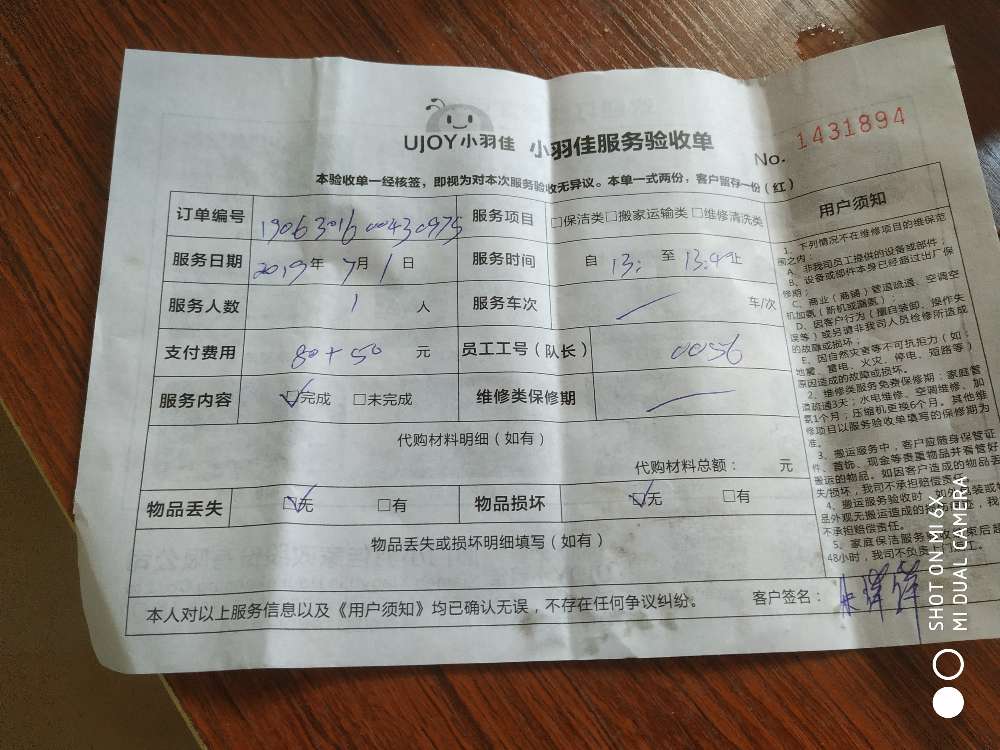 UJOY小羽佳 小羽佳服务验收单 No. 1431894
本验收单一经核签，即视为对本次服务验收无异议。本单一式两份，客户留存一份（红）
订单编号 1906301600430975 服务项目 □保洁类□搬家运输类□维修清洗类
服务日期 2019年 7月 1 日 服务时间 自 13: 至 13:40止
服务人数 1 人 服务车次 — 车/次
支付费用 80+50 元 员工工号（队长） 0056
服务内容 ☑完成 □未完成 维修类保修期 —
代购材料明细（如有）
代购材料总额： 元
物品丢失 ☑无 □有 物品损坏 ☑无 □有
物品丢失或损坏明细填写（如有）
本人对以上服务信息以及《用户须知》均已确认无误，不存在任何争议纠纷。 客户签名：
用户须知
1、下列情况不在维修项目的维保范
围之内：
A、非我司员工提供的设备或部件；
B、设备或部件本身已经超过出厂保
修期；
C、商业（商铺）管道疏通、空调空
机加氨（新机或漏氨）；
D、因客户行为（擅自装卸、操作失
误等）或另请非我司人员检修所造成
的故障或损坏；
E、因自然灾害等不可抗拒力（如：
地震、雷电、火灾、停电、短路等）
原因造成的故障或损坏。
2、维修类服务免费保修期：家庭管
道疏通3天；水电维修、空调维修、加
氨1个月；压缩机更换6个月。其他维
修项目以服务验收单填写的保修期为
准。
3、搬运服务中，客户应随身保管证
件、首饰、现金等贵重物品并看管好
搬运的物品。如因客户造成的物品丢
失/损坏，我司不承担赔偿责任。
4、搬运服务验收时，如外包装或物
品外观无搬运造成的
不承担赔偿责任。
5、家庭保洁服务
48小时，我司不负责
SHOT ON MI 6X
MI DUAL CAMERA